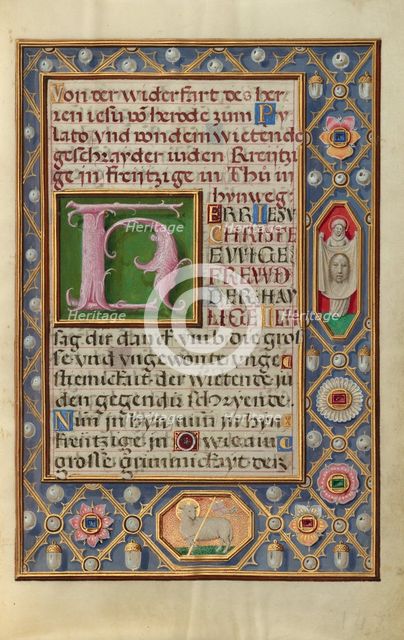 Von der widerfart des her
ren iesu vo herode zum Py
lato vnd von dem wietende
geschray der iuden Kreutzi
ge in kreutzige in Thu in
hynweg
ERR IESV
CHRISTE
EWIGE
FREWD
DER HAY
MGEIL
sag dir danck vmb die gros
se vnd vngewonte vnge
stiemickait der wietende iu
den gegen dir schryende
Nim in hyn nim in hyn
kreutzige in wie ain
grosse grimmickayt der
Heritage
Heritage
Heritage
Heritage
Heritage
Heritage